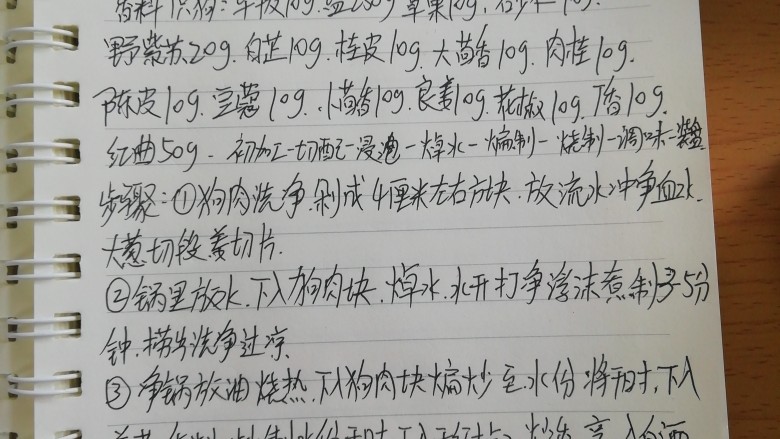 野紫苏20g.白芷10g.桂皮10g.大茴香10g.肉桂10g.
陈皮10g.豆蔻10g.小茴香10g.良姜10g.花椒10g.丁香10g.
红曲50g. 初加工-切配-浸泡-焯水-煸制-烧制-调味-装盘
步骤:①狗肉洗净.剁成4厘米左右方块.放流水冲净血水.
大葱切段姜切片.
②锅里放水.下入狗肉块.焯水.水开打净浮沫煮制3-5分
钟.捞出洗净过凉.
③净锅放油烧热.下入狗肉块煸炒至水份将干时,下入